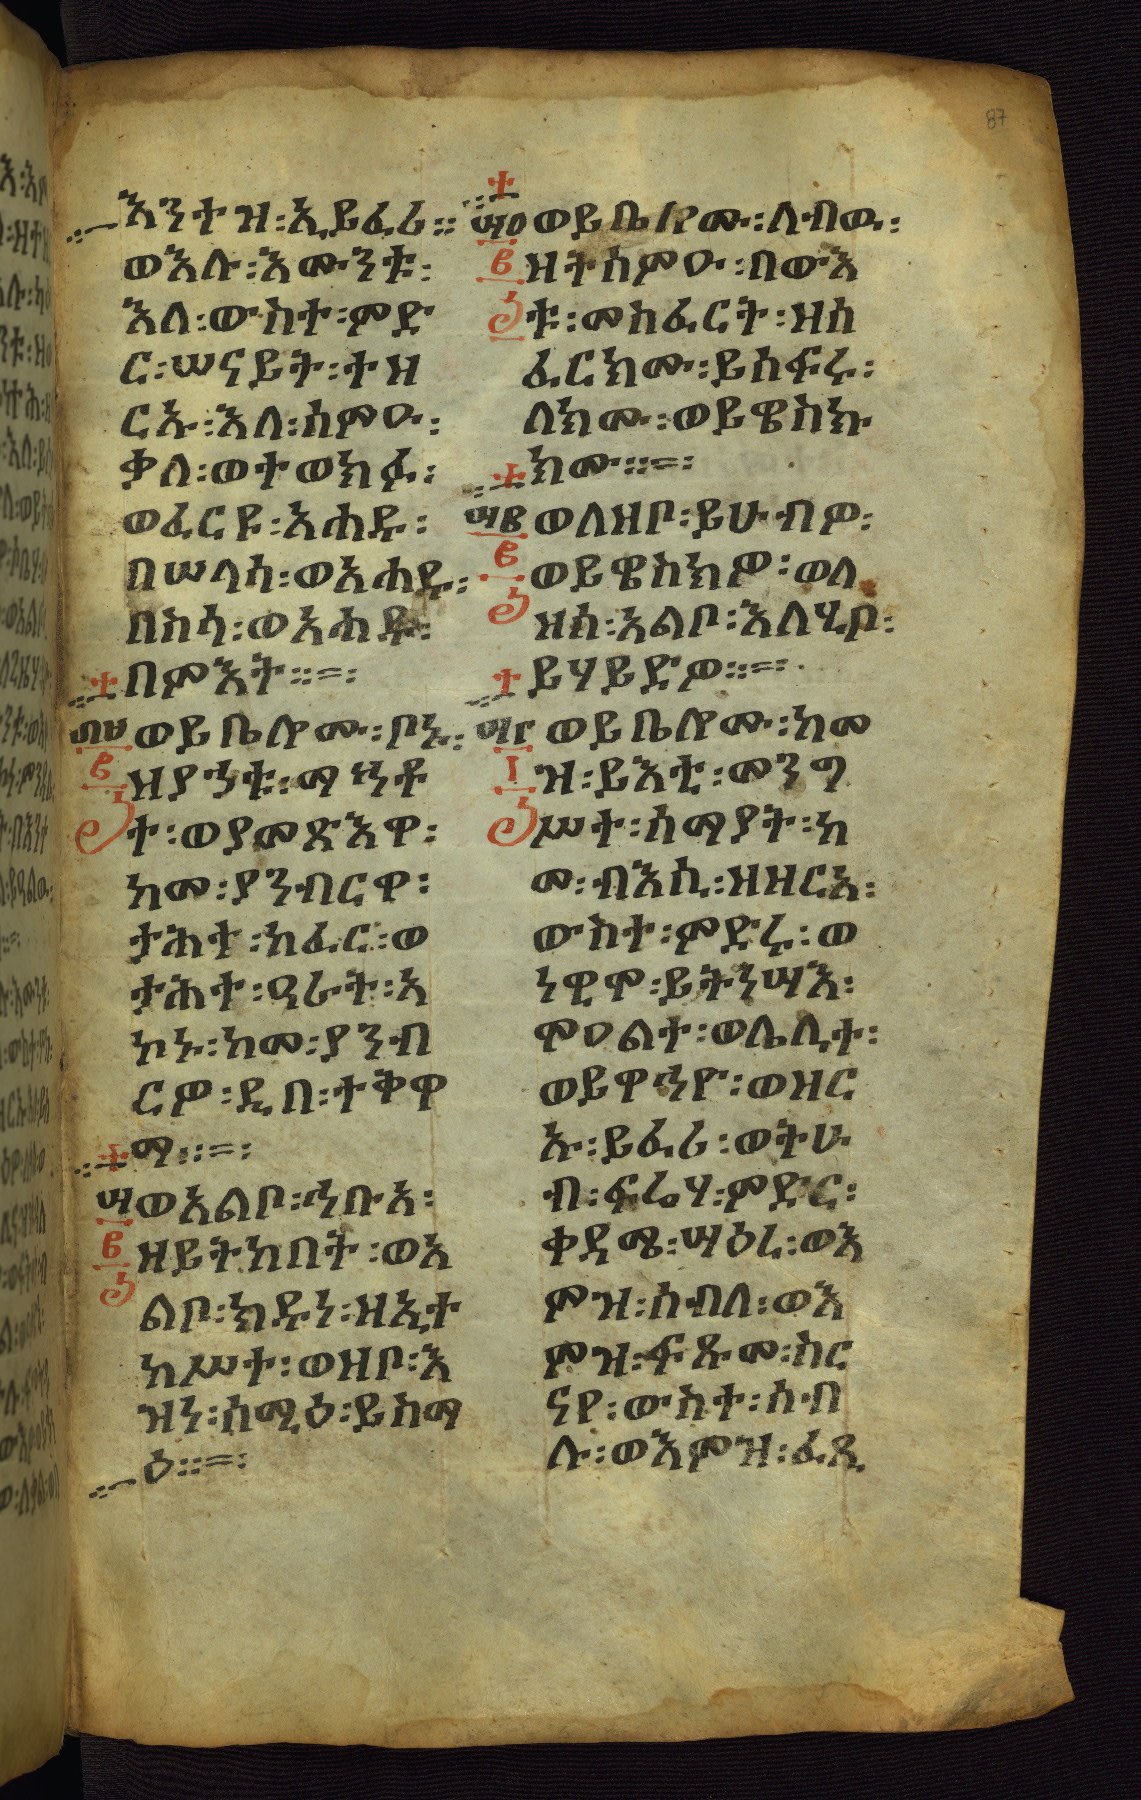 87
እንተ ዝ፡ኢይፈሪ፡፡
ወእሉ፡እሙንቱ፡
እለ፡ውስተ፡ምድ
ር፡ሠናይት፡ተዘ
ርኡ፡እለ፡ሰምዑ፡
ቃለ፡ወተወክፉ፡
ወፈርዩ፡አሐዱ፡
በሠላሳ፡ወአሐዱ፡
በስሳ፡ወአሐዱ፡
በምእት፡፡=፡
ወይቤሎሙ፡ቦኑ፡
ዘያኀቱ፡ማኅቶ
ተ፡ወያመጽእዋ፡
ከመ፡ያንብርዋ፡
ታሕተ፡ከፈር፡ወ
ታሕተ፡ዓራት፡አ
ኮኑ፡ከመ፡ያንብ
ርዎ፡ዲበ፡ተቅዋ
ማ፡፡=፡
ወአልቦ፡ኅቡአ፡
ዘይትከበት፡ወአ
ልቦ፡ክዱነ፡ዘኢተ
ከሥተ፡ወዘቦ፡እ
ዝነ፡ሰሚዕ፡ይስማ
ዕ፡፡=፡
ወይቤሎሙ፡ለብዉ፡
ዘትሰምዑ፡በውእ
ቱ፡መስፈርት፡ዘሰ
ፈርክሙ፡ይሰፍሩ፡
ለክሙ፡ወይዌስኩ
ክሙ፡፡=፡
ወለዘቦ፡ይሁብዎ፡
ወይዌስክዎ፡ወለ
ዝሰ፡አልቦ፡እለሂቦ፡
ይሃይድዎ፡፡=፡
ወይቤሎሙ፡ከመ
ዝ፡ይእቲ፡መንግ
ሥተ፡ሰማያት፡ከ
መ፡ብእሲ፡ዘዘርአ፡
ውስተ፡ምድሩ፡ወ
ነዊሞ፡ይትነሣእ፡
ሞዐልተ፡ወሌሊተ፡
ወይዋኅዮ፡ወዘር
ኡ፡ይፈሪ፡ወትሁ
ብ፡ፍሬሃ፡ምድር፡
ቀዳሜ፡ሣዕረ፡ወእ
ምዝ፡ሰብለ፡ወእ
ምዝ፡ፍጹመ፡ስር
ናየ፡ውስተ፡ሰብ
ሉ፡ወእምዝ፡ፈጺ